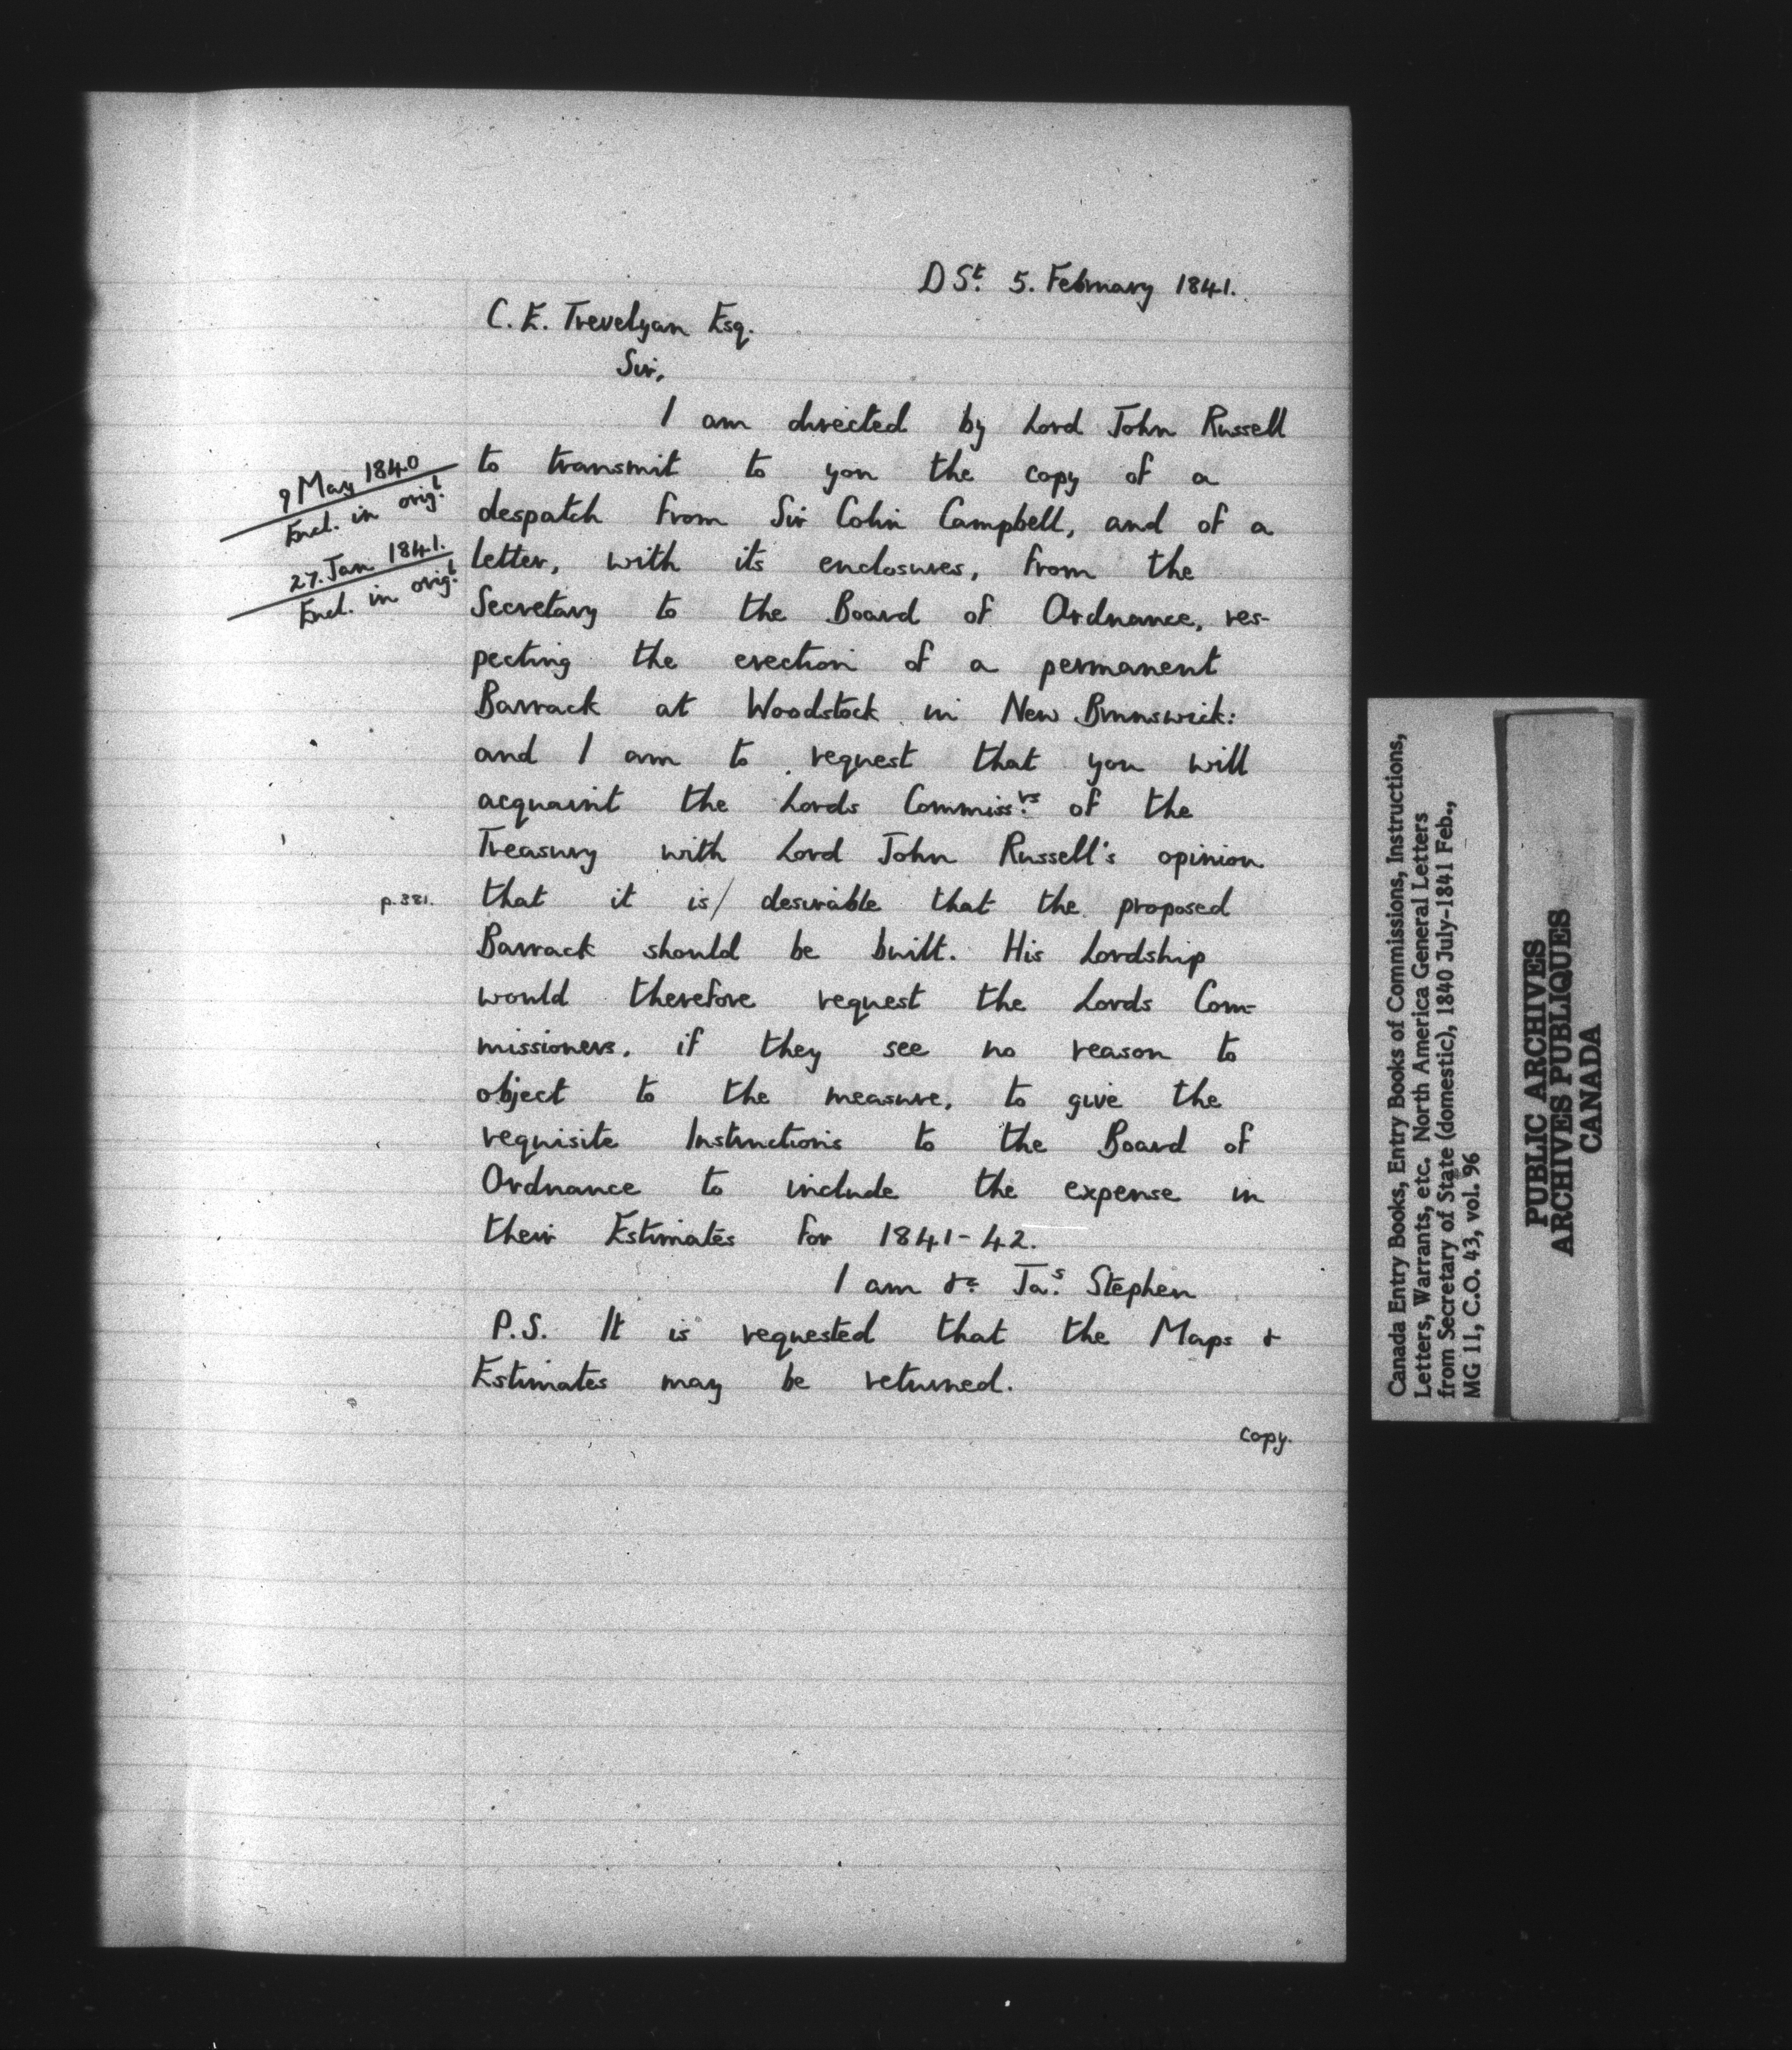 D St. 5. February 1841.
C. E. Trevelyan Esq.
Sir,
I am directed by Lord John Russell
to transmit to you the copy of a
despatch from Sir Colin Campbell, and of a
letter, with its enclosures, from the
Secretary to the Board of Ordnance, res-
pecting the erection of a permanent
Barrack at Woodstock in New Brunswick:
and I am to request that you will
acquaint the Lords Commiss.rs of the
Treasury with Lord John Russell's opinion
that it is/ desirable that the proposed
Barrack should be built. His Lordship
would therefore request the Lords Com-
missioners, if they see no reason to
object to the measure, to give the
requisite Instructions to the Board of
Ordnance to include the expense in
their Estimates for 1841-42.
I am &c Jas. Stephen
P.S. It is requested that the Maps &
Estimates may be returned.
copy.
9 May 1840
Encl. in orig.l
27. Jan 1841.
Encl. in orig.l
p.381.
Canada Entry Books, Entry Books of Commissions, Instructions,
Letters, Warrants, etc. North America General Letters
from Secretary of State (domestic), 1840 July-1841 Feb.,
MG 11, C.O. 43, vol. 96
PUBLIC ARCHIVES
ARCHIVES PUBLIQUES
CANADA